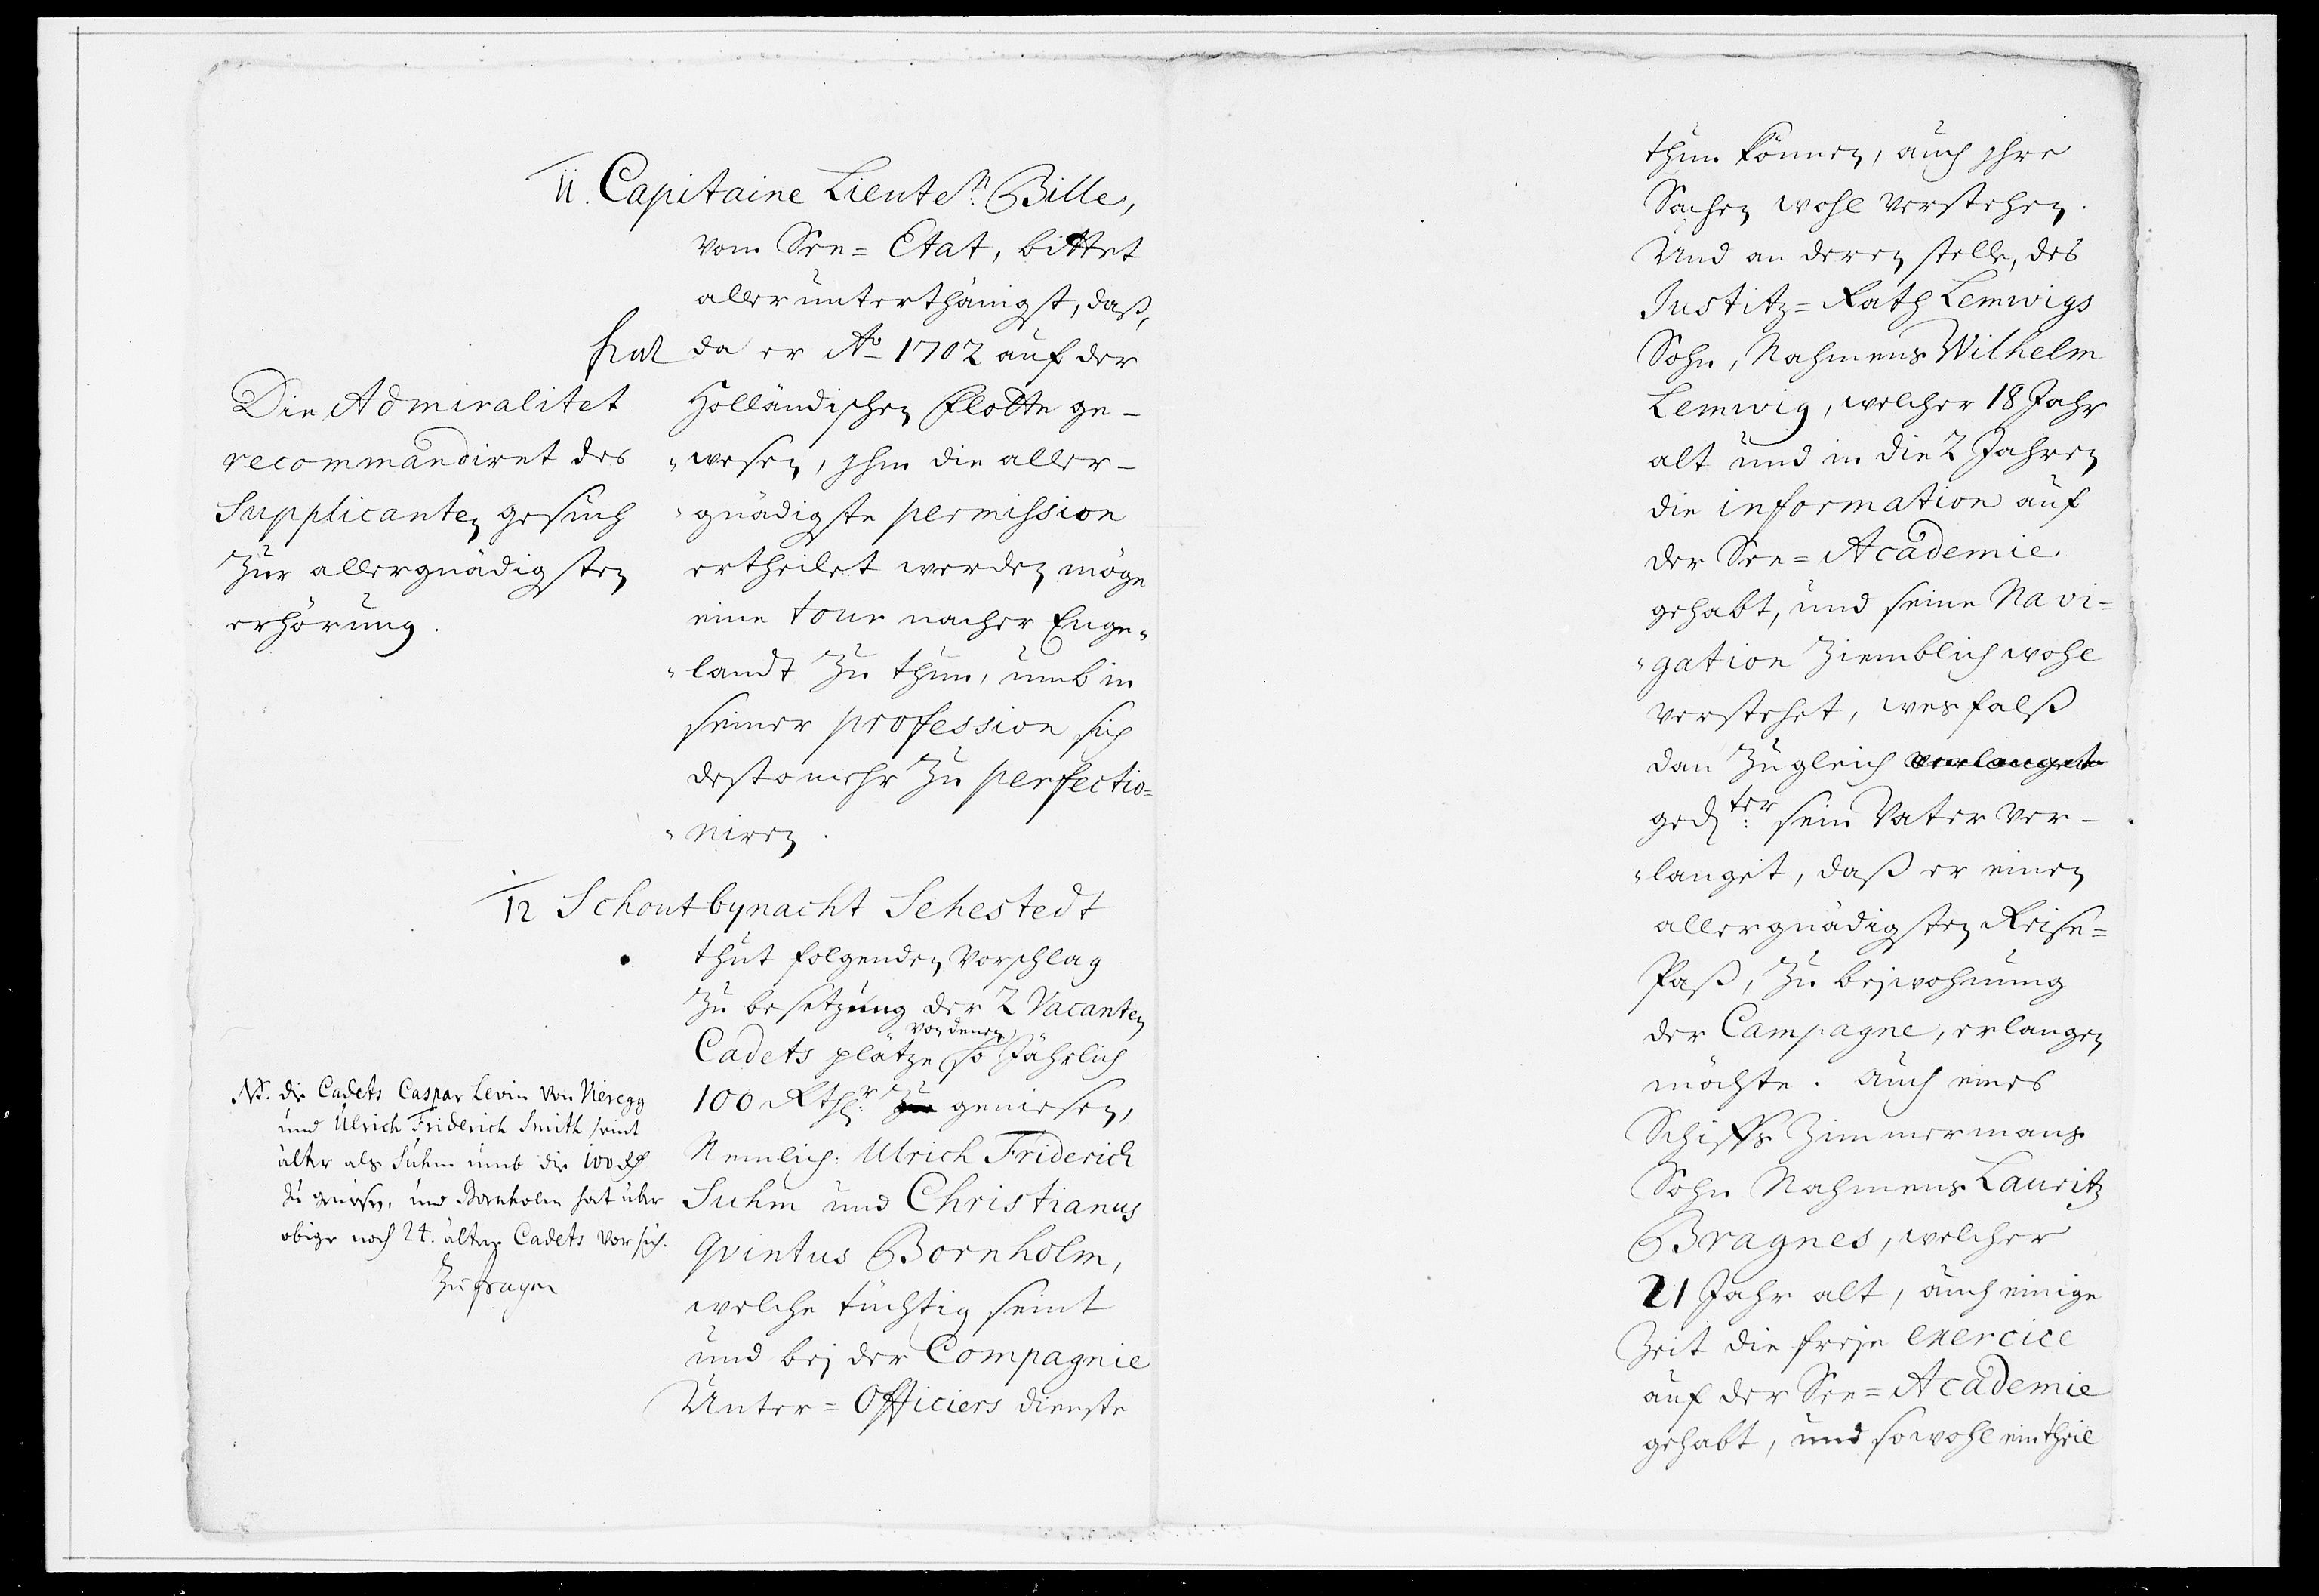 11. Capitaine Lieutn: Bille,
vom See=Etat, bittet
allerunterthänigst, daß,
da er Ao 1702 auf der
Holländischen Flotte ge-
"wesen, Ihm die aller-
"gnädigste permission
ertheilet werden möge
eine tour nacher Enge-
"landt zu thun, umb in
seiner profession sich
desto mehr zu perfectio=
"niren.
fiat
Die Admiralitet
recommandiret des
Supplicanten gesuch
zur allergnädigsten
erhörung.
12 Schoutbynacht Sehestedt
thut folgenden Vorschlag
zu besetzung der 2 Vacanten
Cadets plätze so von denen Jährlich
100 Rthlr: zu geniesen,
Nemlich: Ulrich Friderich
Suhm und Christianus
Qvintus Bornholm,
welche tüchtig seint
und bej der Compagnie
Unter=Officiers dienste
NB. die Cadets Caspar Levin von Vieregg
und Ulrich Friderich Smith seint
älter als Suhm umb die 100 Rth
zu geniesen, und Bornholm hat über
obige noch 24. ältere Cadets vor sich.
thun können, auch Ihre
Sachen wohl verstehen.
Und an deren stelle, des
Justitz=Rath Lemwigs
Sohn, Nahmens Wilhelm
Lemwig, welcher 18 Jahr
alt und in die 2 Jahren
die information auf
der See=Academie
gehabt, und seine Navi=
"gation ziemblich wohl
verstehet, wesfalß
dan zugleich verlanget
gedter: sein Vater ver-
"langet, daß er einen
allergnädigsten Reise=
Paß, zu bejwohnung
der Campagne, erlangen
möchte. Auch eines
Schiffs Zimmermans
Sohn Nahmens Lauritz
Bragnes, welcher
21 Jahr alt, auch einige
Zeit die freje exercice
auf der See=Academie
gehabt, und sowohl ein theil